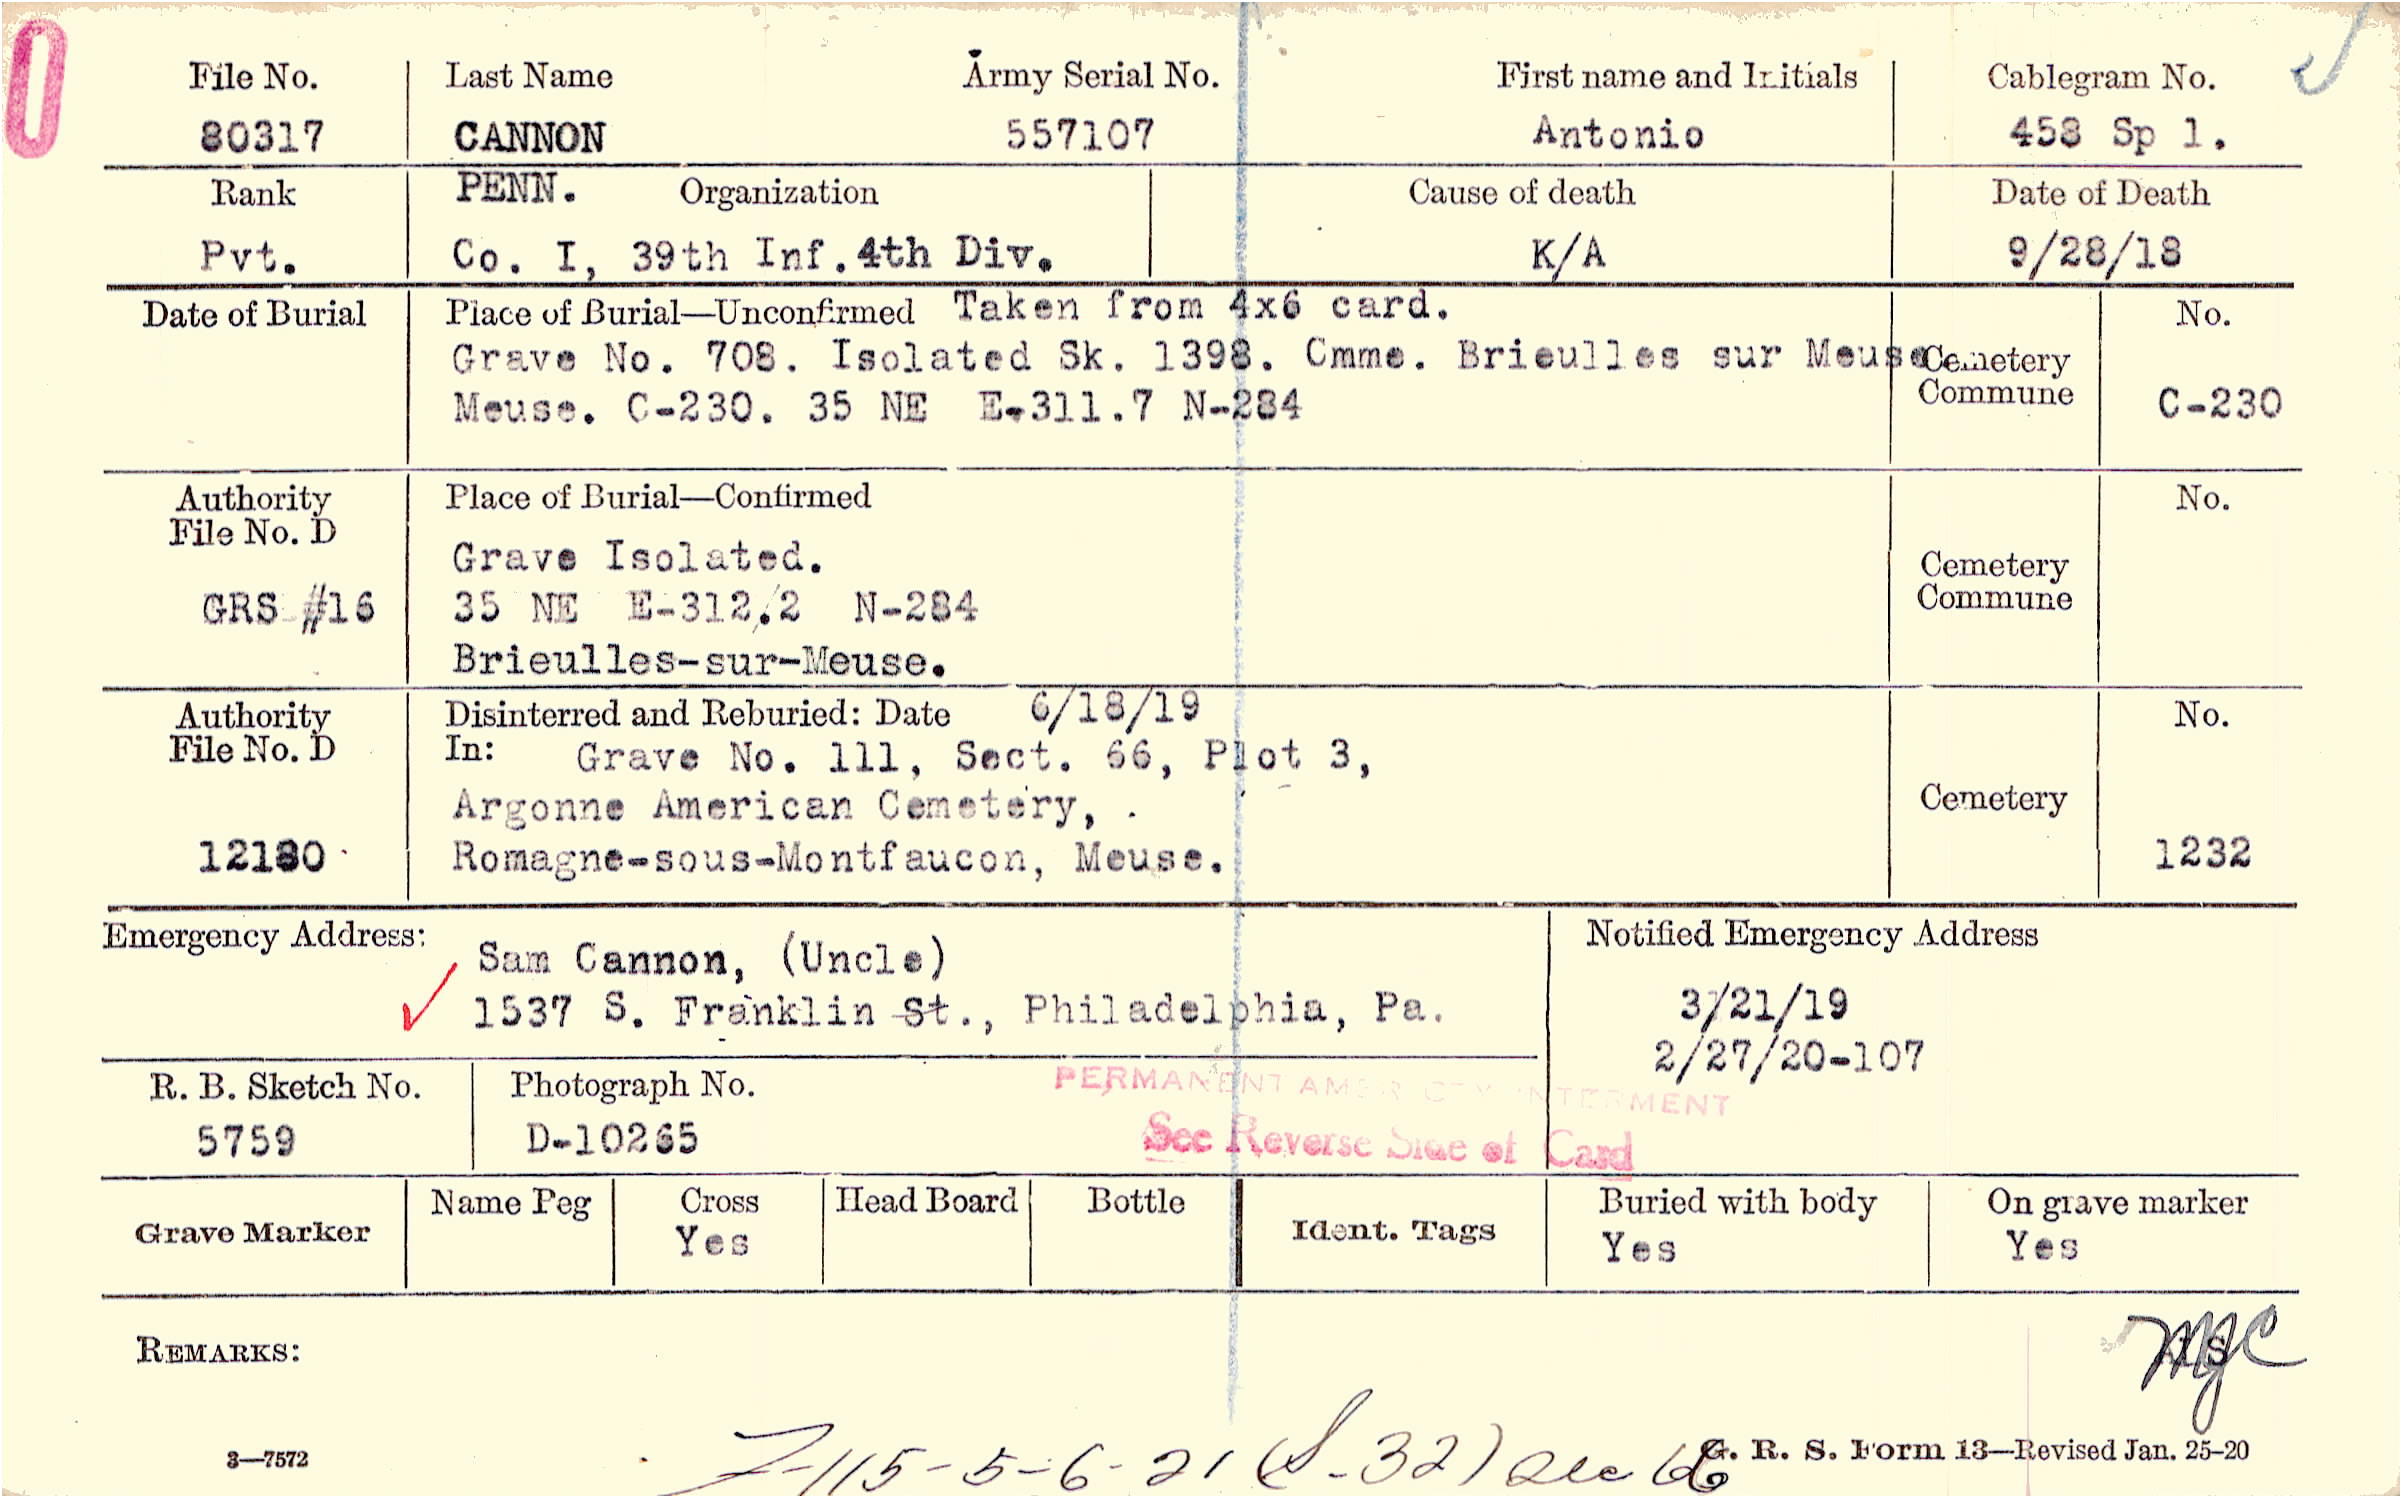 0
File No. Last Name Army Serial No. First name and Initials Cablegram No.
80317 CANNON 557107 Antonio 458 Sp l.
Rank PENN. Organization Cause of death Date of Death
Pvt. Co. I, 39th Inf. 4th Div. K/A 9/28/18
Date of Burial Place of Burial—Unconfirmed Taken from 4x6 card. No.
Grave No. 708. Isolated Sk. 1398. Cmme. Brieulles sur Meuse Cemetery
Meuse. C-230. 35 NE E-311.7 N-284 Commune C-230
Authority Place of Burial—Confirmed No.
File No. D
Grave Isolated. Cemetery
GRS #16 35 NE E-312.2 N-284 Commune
Brieulles-sur-Meuse.
Authority Disinterred and Reburied: Date 6/18/19 No.
File No. D In: Grave No. 111, Sect. 66, Plot 3,
Argonne American Cemetery, Cemetery
12180 Romagne-sous-Montfaucon, Meuse. 1232
Emergency Address: Notified Emergency Address
Sam Cannon, (Uncle)
1537 S. Franklin St., Philadelphia, Pa. 3/21/19
2/27/20-107
R. B. Sketch No. Photograph No. PERMANENT INTERMENT
5759 D-10265 See Reverse Side of Card
Grave Marker Name Peg Cross Head Board Bottle Ident. Tags Buried with body On grave marker
Yes Yes Yes
REMARKS: MJC
3—7572 G. R. S. Form 13—Revised Jan. 25-20
115-5-6-21 (S-32)